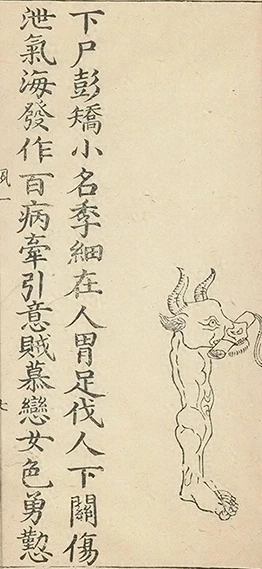 下尸彭矯小名季細在人胃足伐人下關傷
泄氣海發作百病牽引意賊慕戀女色勇懃